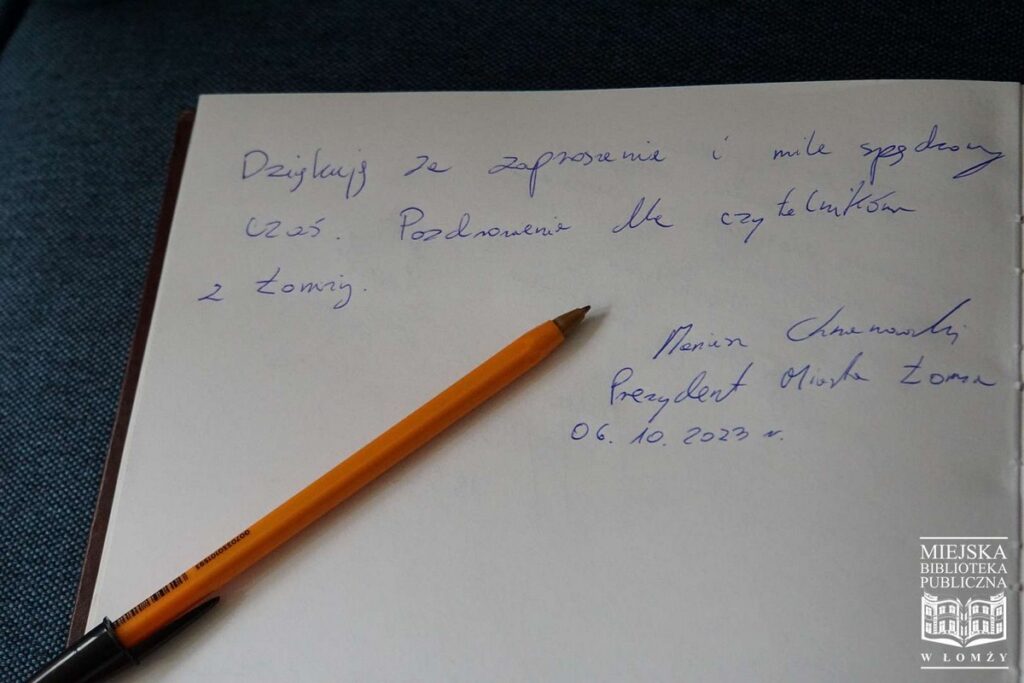 Dziękuję za zaproszenie i mile spędzony
czas. Pozdrowienia dla czytelników
z Łomży.
Mariusz Chrzanowski
Prezydent Miasta Łomża
06.10.2023 r.
MIEJSKA
BIBLIOTEKA
PUBLICZNA
W ŁOMŻY